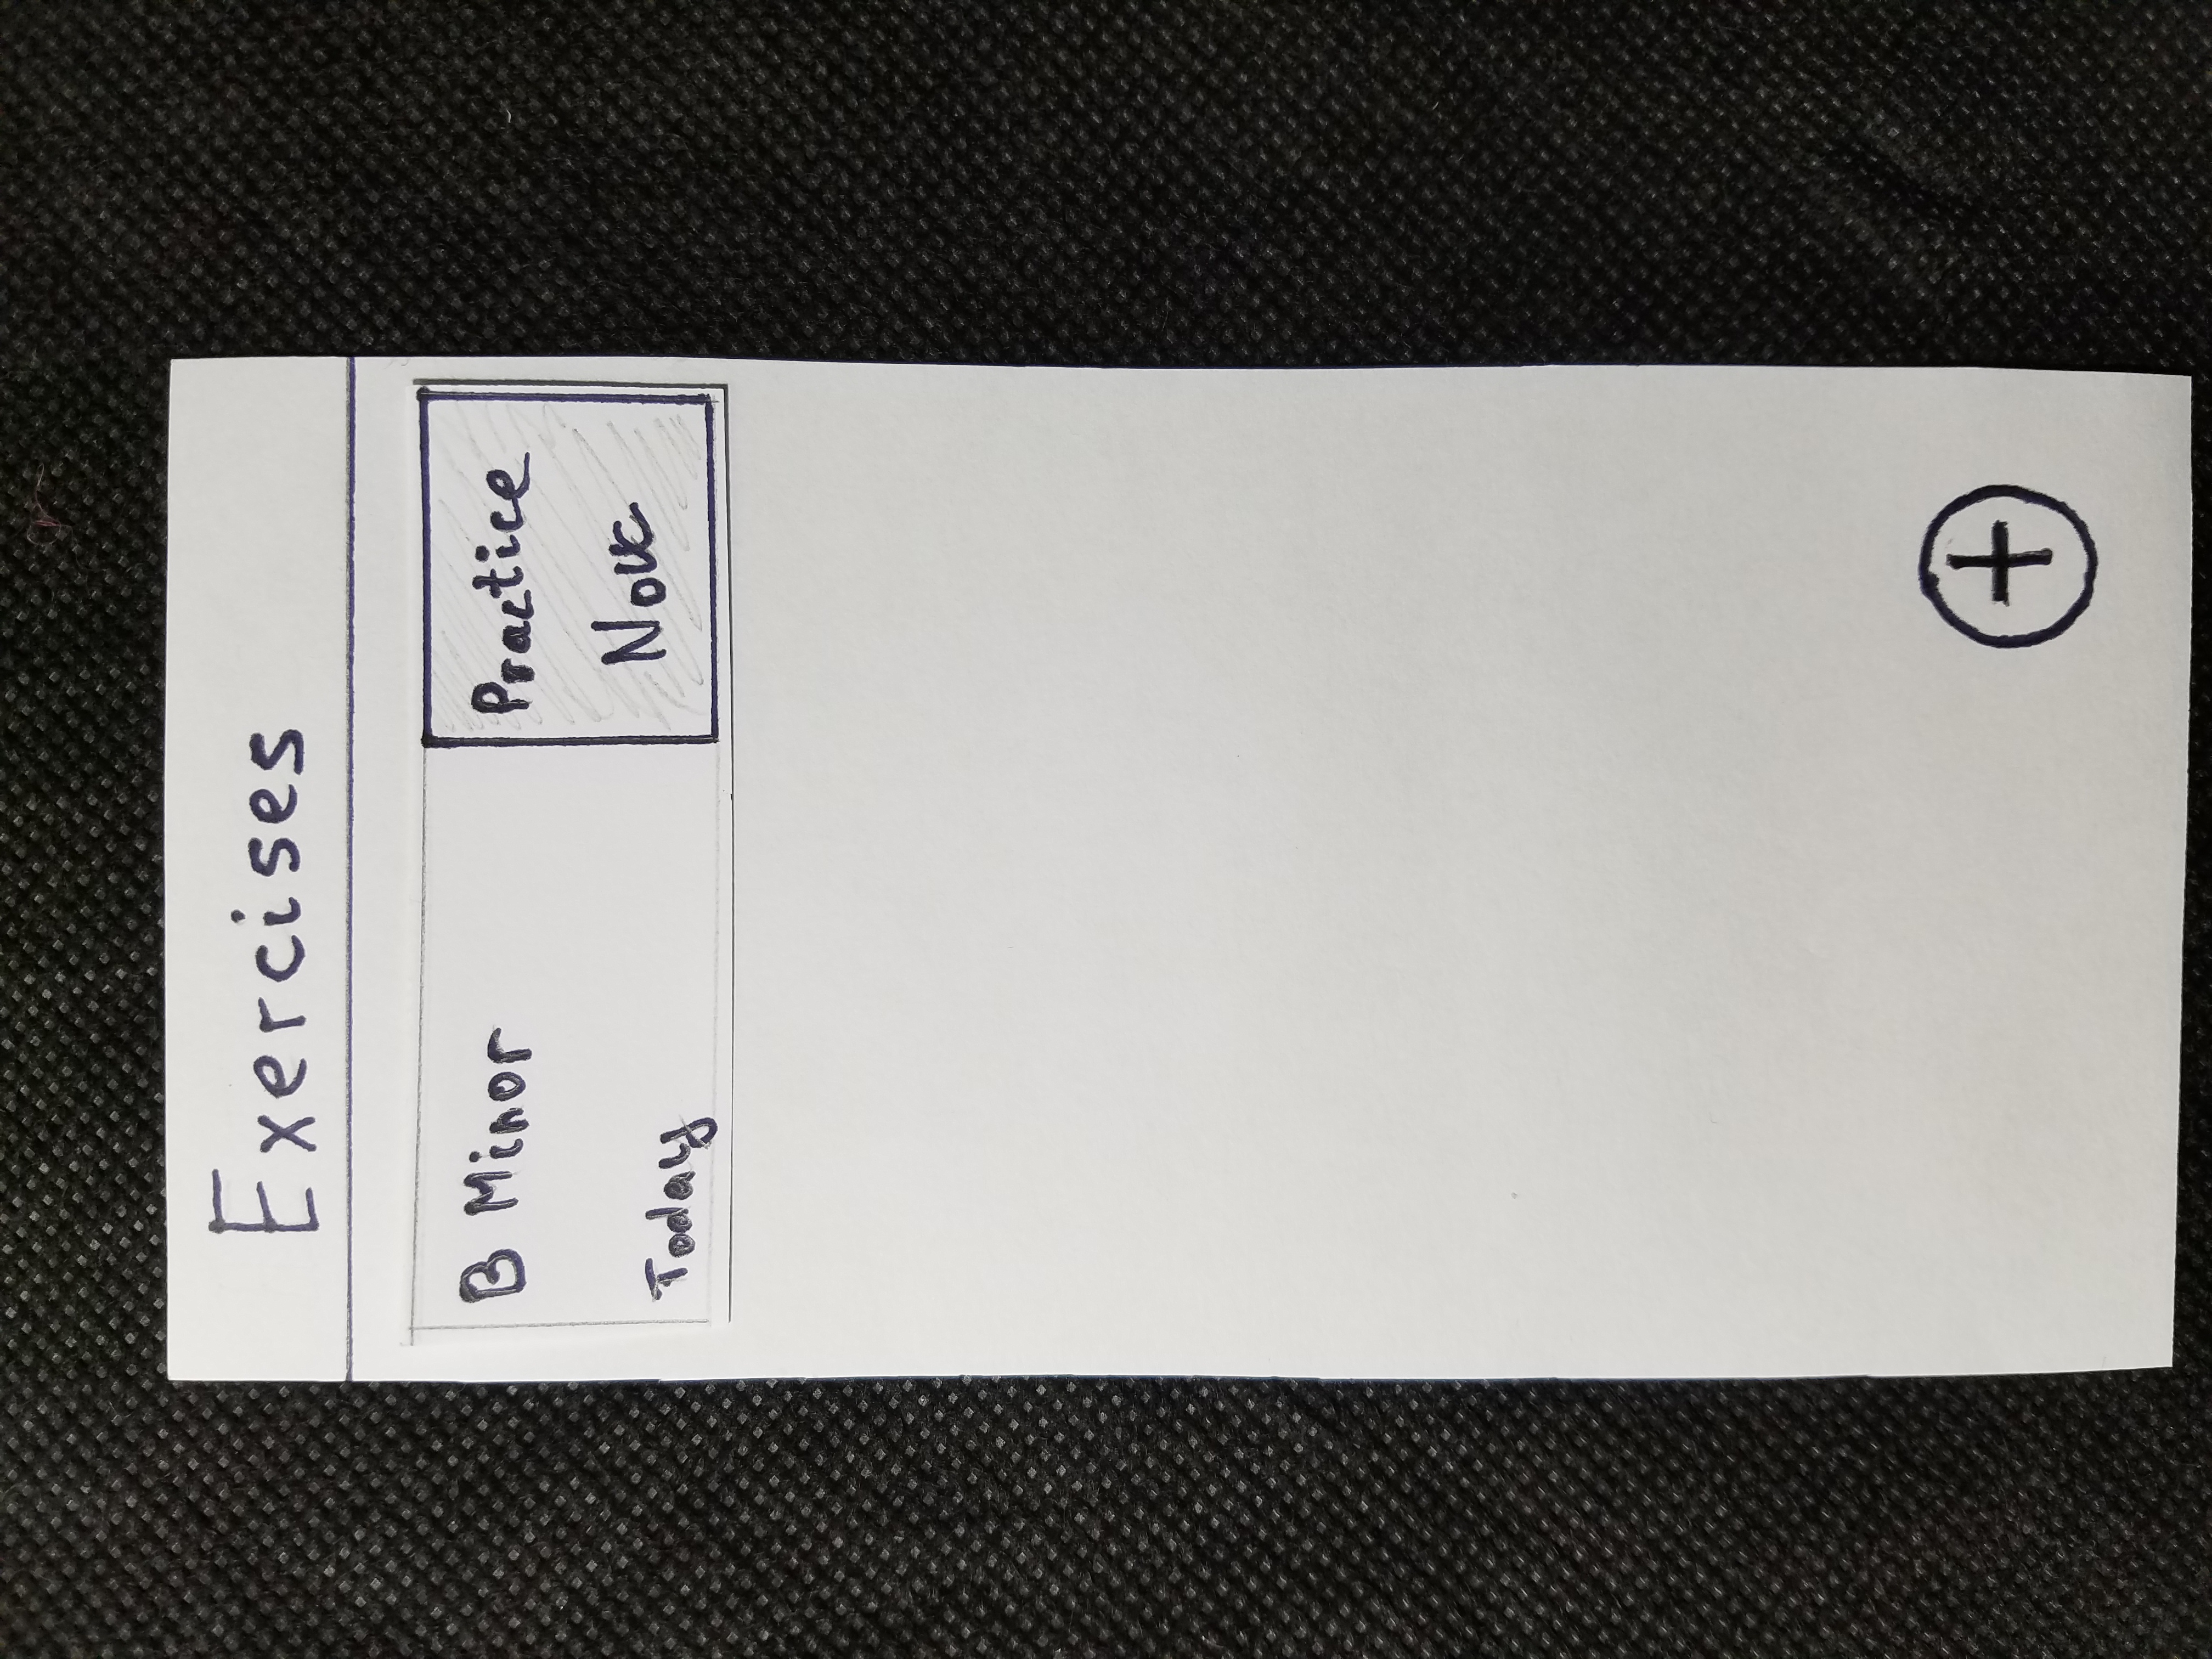 Exercises
B Minor
Today
Practice
Now
+